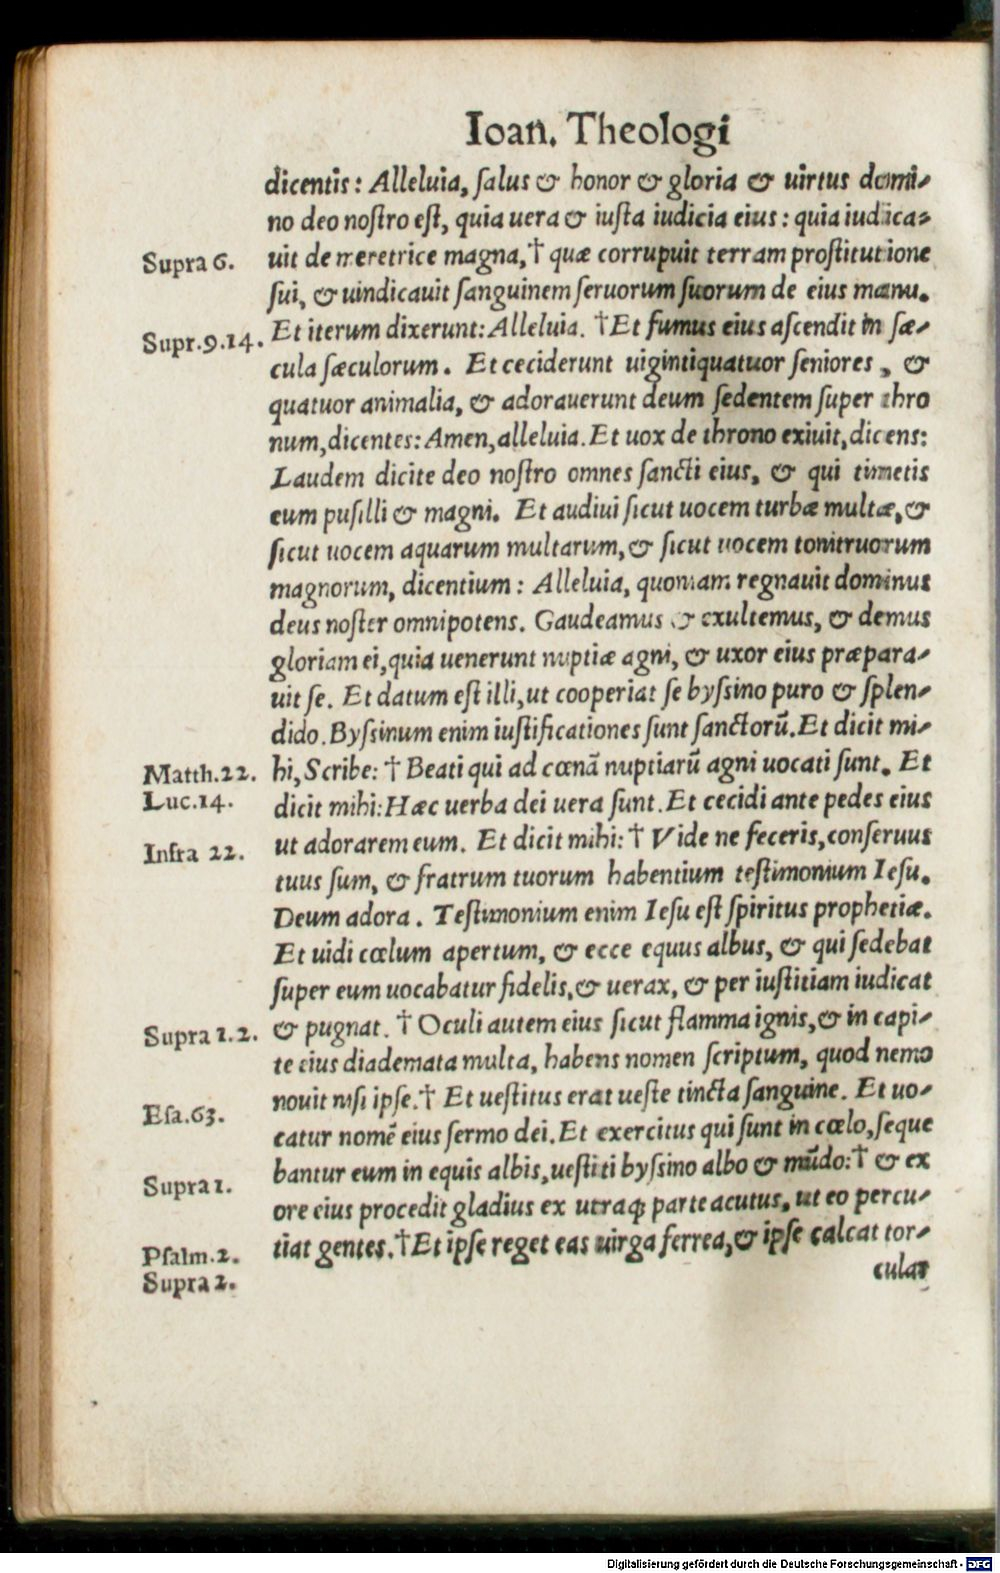 Ioan. Theologi
dicentis: Alleluia, ſalus & honor & gloria & uirtus domi-
no deo noſtro eſt, quia uera & iuſta iudicia eius: quia iudica-
Supra 6. uit de meretrice magna, † quæ corrupuit terram proſtitutione
ſui, & uindicauit ſanguinem ſeruorum ſuorum de eius manu.
Supr.9.14. Et iterum dixerunt: Alleluia. † Et fumus eius aſcendit in ſæ-
cula ſæculorum. Et ceciderunt uigintiquatuor ſeniores, &
quatuor animalia, & adorauerunt deum ſedentem ſuper thro
num, dicentes: Amen, alleluia. Et uox de throno exiuit, dicens:
Laudem dicite deo noſtro omnes ſancti eius, & qui timetis
eum puſilli & magni. Et audiui ſicut uocem turbæ multæ, &
ſicut uocem aquarum multarum, & ſicut uocem tonitruorum
magnorum, dicentium: Alleluia, quoniam regnauit dominus
deus noſter omnipotens. Gaudeamus & exultemus, & demus
gloriam ei, quia uenerunt nuptiæ agni, & uxor eius præpara-
uit ſe. Et datum eſt illi, ut cooperiat ſe byſsino puro & ſplen-
dido. Byſsinum enim iuſtificationes ſunt ſanctorũ. Et dicit mi-
Matth.22. hi, Scribe: † Beati qui ad cœnã nuptiarũ agni uocati ſunt. Et
Luc.14. dicit mihi: Hæc uerba dei uera ſunt. Et cecidi ante pedes eius
Infra 22. ut adorarem eum. Et dicit mihi: † Vide ne feceris, conſeruus
tuus ſum, & fratrum tuorum habentium teſtimonium Ieſu.
Deum adora. Teſtimonium enim Ieſu eſt ſpiritus prophetiæ.
Et uidi cœlum apertum, & ecce equus albus, & qui ſedebat
ſuper eum uocabatur fidelis, & uerax, & per iuſtitiam iudicat
Supra 1.2. & pugnat. † Oculi autem eius ſicut flamma ignis, & in capi-
te eius diademata multa, habens nomen ſcriptum, quod nemo
nouit niſi ipſe. † Et ueſtitus erat ueſte tincta ſanguine. Et uo-
Eſa.63. catur nomẽ eius ſermo dei. Et exercitus qui ſunt in cœlo, ſeque
bantur eum in equis albis, ueſtiti byſsino albo & mũdo: † & ex
Supra 1. ore eius procedit gladius ex utraq; parte acutus, ut eo percu-
tiat gentes. † Et ipſe reget eas uirga ferrea, & ipſe calcat tor-
Pſalm.2.
Supra 2.
cular
Digitalisierung gefördert durch die Deutsche Forschungsgemeinschaft - DFG